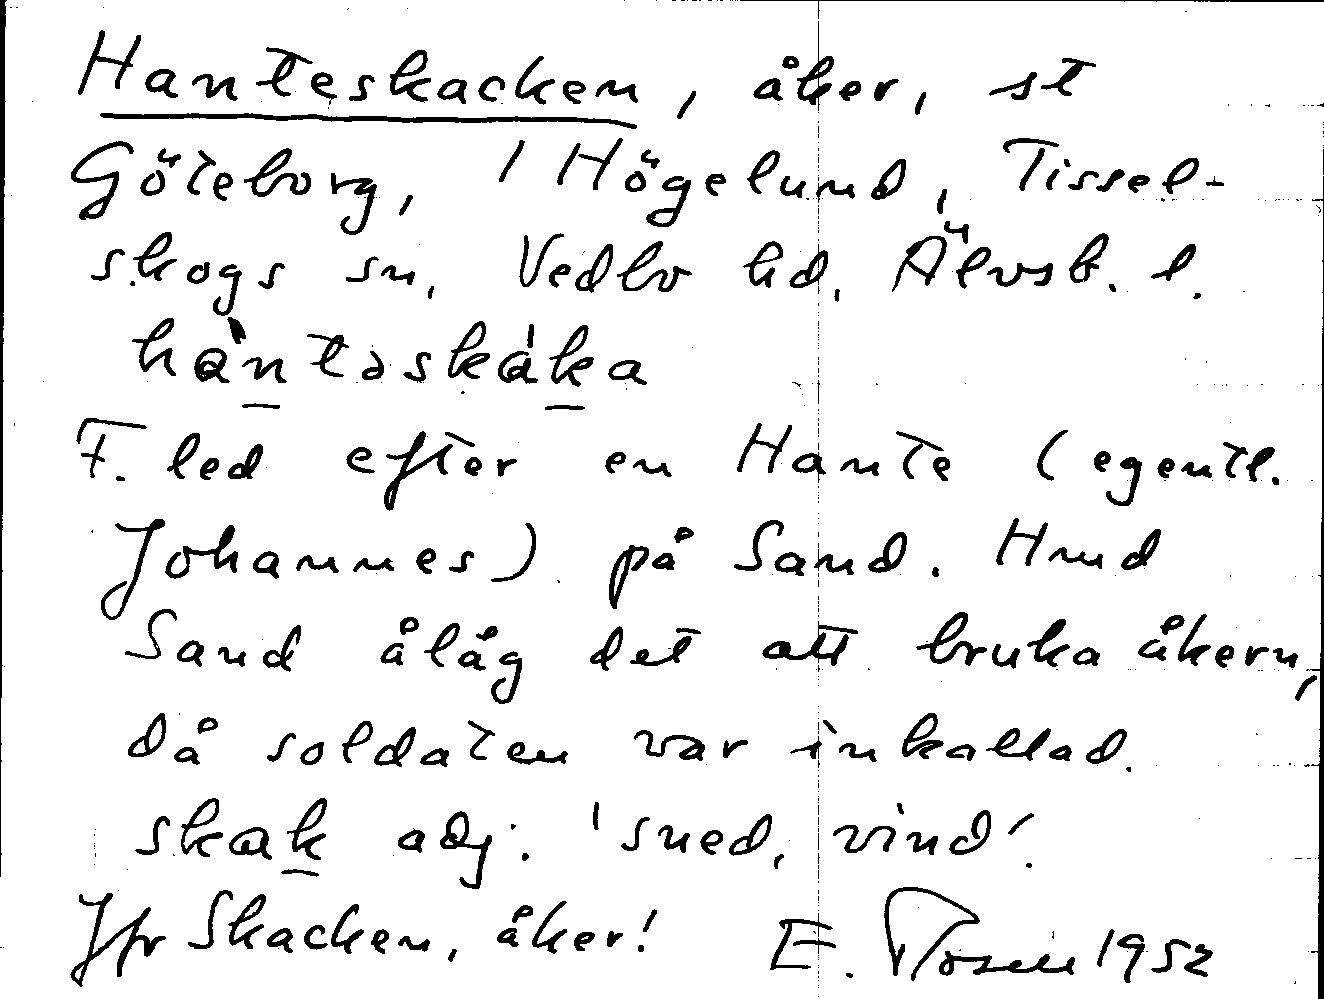 Hanteskacken, åker, st
Göteborg, 1 Högelund, Tissel-
skogs sn, Vedbo hd, Älvsb. l.
hàn̠təskák̠a
F. led efter en Hante (egentl.
Johannes) på Sand. Hmd
Sand ålåg det att bruka åkern,
då soldaten var inkallad.
skak̠ adj. 'sned, vind'.
Jfr Skacken, åker! E. Rosell 1952